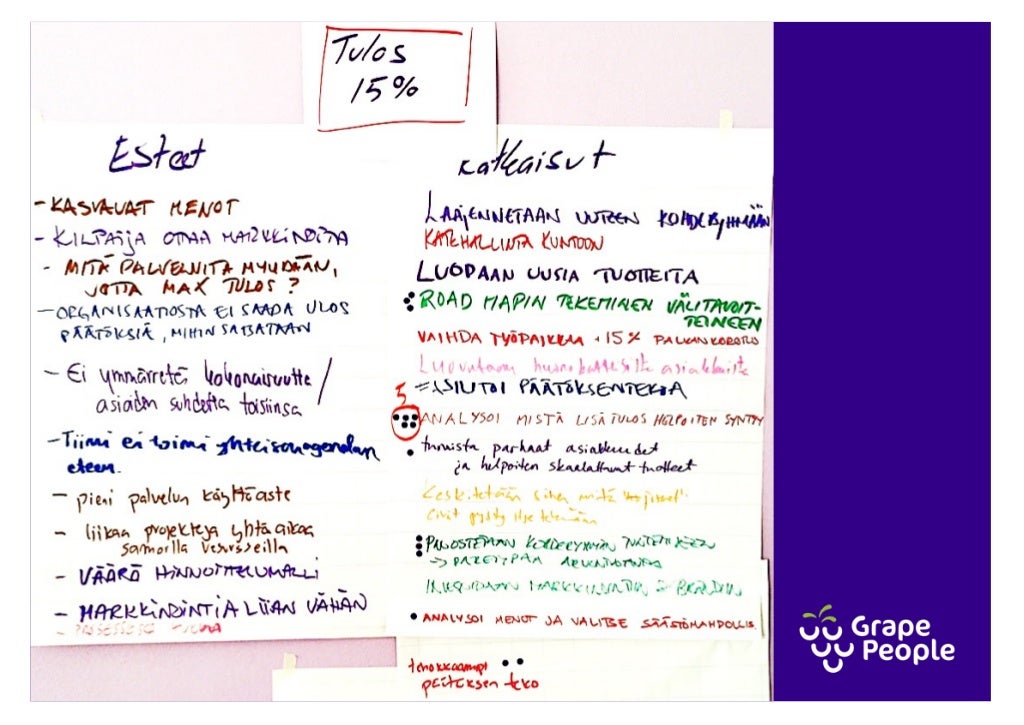 Tulos
15%
Esteet
- KASVAVAT MENOT
- KILPAILIJA OTTAA MARKKINOITA
- MITÄ PALVELUITA MYYDÄÄN,
JOTTA MAX TULOS?
- ORGANISAATIOSTA EI SAADA ULOS
PÄÄTÖKSIÄ, MIHIN SATSATAAN
- Ei ymmärretä kokonaisuutta /
asioiden suhdetta toisiinsa
- Tiimi ei toimi yhteisen agendan
eteen.
- pieni palvelun käyttöaste
- liikaa projekteja yhtä aikaa
samoilla
- VÄÄRÄ HINNOITTELUMALLI
- MARKKINOINTIA LIIAN VÄHÄN
Katkaisut
LAAJENNETAAN UUTEEN KOHDERYHMÄÄN
KATEHALLINTA KUNTOON
LUODAAN UUSIA TUOTTEITA
ROAD MAPIN TEKEMINEN VÄLITAVOIT-
TEINEEN
VAIHDA TYÖPAIKKAA +15% PALKANKOROTUS
Luovutaan asiakkaista
PÄÄTÖKSENTEKIJÄ
5
ANALYSOI MISTÄ LISÄTULOS HELPOITEN SYNTYY
tunnista parhaat asiakkuudet
ja helpoiten skaalattavat tuotteet
Keskitetään siihen mitä
eivät pysty itse tekemään
PANOSTETAAN KOHDERYHMÄN
MARKKINOINTIA BRÄNDIIN
ANALYSOI MENOT JA VALITSE SÄÄSTÖMAHDOLLIS.
tehokkaampi
päätöksen teko
Grape
People